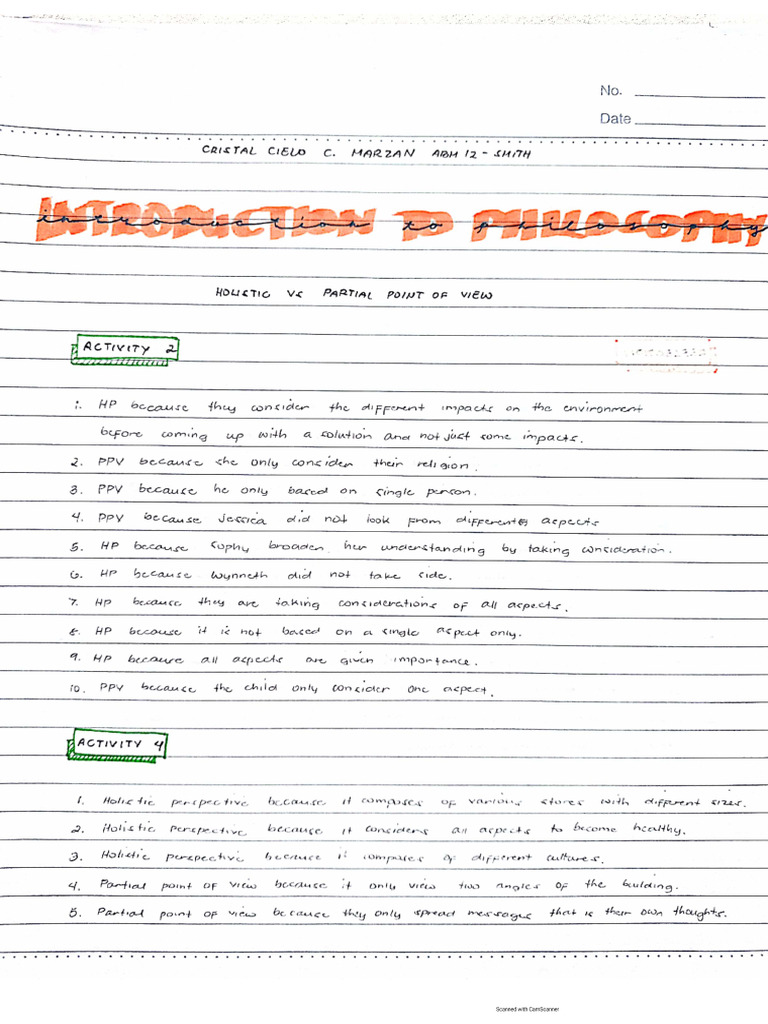 No.
Date
CRISTAL CIELO C. MARZAN ABM 12 - SMITH
INTRODUCTION TO PHILOSOPHY
introduction to philosophy
HOLISTIC VS PARTIAL POINT OF VIEW
ACTIVITY 2
1. HP because they consider the different impacts on the environment
before coming up with a solution and not just some impacts.
2. PPV because she only consider their religion.
3. PPV because he only based on single person.
4. PPV because Jessica did not look from different aspects
5. HP because sophy broaden her understanding by taking consideration.
6. HP because wynneth did not take side.
7. HP because they are taking considerations of all aspects.
8. HP because it is not based on a single aspect only.
9. HP because all aspects are given importance.
10. PPV because the child only consider one aspect.
ACTIVITY 4
1. Holistic perspective because it composes of various stores with different sizes.
2. Holistic perspective because it considers all aspects to become healthy.
3. Holistic perspective because it composes of different cultures.
4. Partial point of view because it only view two angles of the building.
5. Partial point of view because they only spread messages that is their own thoughts.
Scanned with CamScanner